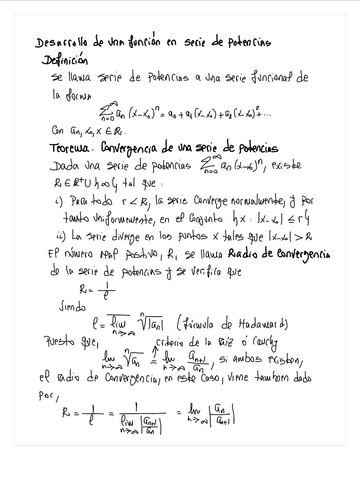 Desarrollo de una función en serie de potencias
Definición
Se llama serie de potencias a una serie funcional de
la forma
∑_{n=0}^{∞} a_n (x-x_0)^n = a_0 + a_1 (x-x_0) + a_2 (x-x_0)^2 + ...
Con a_n, x_0, x ∈ R.
Teorema. Convergencia de una serie de potencias
Dada una serie de potencias ∑_{n=0}^{∞} a_n (x-x_0)^n, existe
R ∈ R^+ ∪ {∞} tal que:
i) Para todo r < R, la serie converge normalmente, y por
tanto uniformemente, en el conjunto {x: |x-x_0| ≤ r}
ii) La serie diverge en los puntos x tales que |x-x_0| > R
El número real positivo, R, se llama Radio de convergencia
de la serie de potencias y se verifica que
R = 1/ℓ
Siendo
ℓ = \overline{lim}_{n→∞} ⁿ√|a_n| (fórmula de Hadamard)
Puesto que, criterio de la raíz ó Cauchy
lim_{n→∞} ⁿ√a_n = lim_{n→∞} a_{n+1}/a_n, si ambos existen,
el radio de convergencia, en este caso, viene también dado
por,
R = 1/ℓ = 1/(lim_{n→∞} |a_{n+1}/a_n|) = lim_{n→∞} |a_n/a_{n+1}|